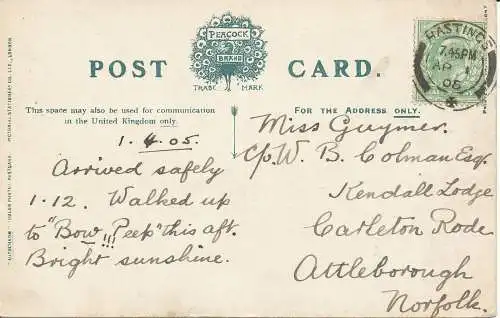 PEACOCK
BRAND
TRADE MARK
POST CARD.
This space may also be used for communication
in the United Kingdom only.
FOR THE ADDRESS ONLY.
1.4.05.
Arrived safely
1.12. Walked up
to "Bow!!! Peep" this aft.
Bright sunshine.
Miss Guymer.
C/o W. B. Colman Esq.
Kendall Lodge
Carleton Rode
Attleborough
Norfolk.
HASTINGS
7.45PM
AP
05